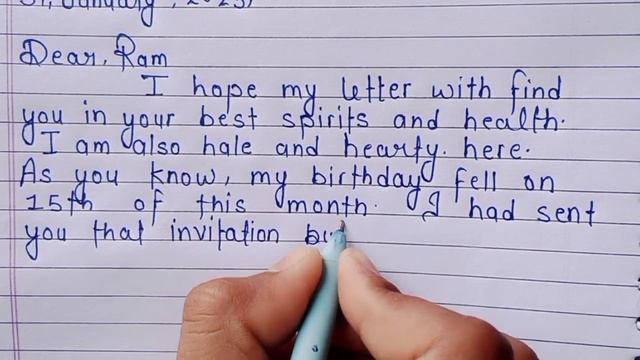 January, 202
Dear, Ram
I hope my letter with find
you in your best spirits and health.
I am also hale and hearty. here.
As you know, my birthday fell on
15th of this month. I had sent
you that invitation bu